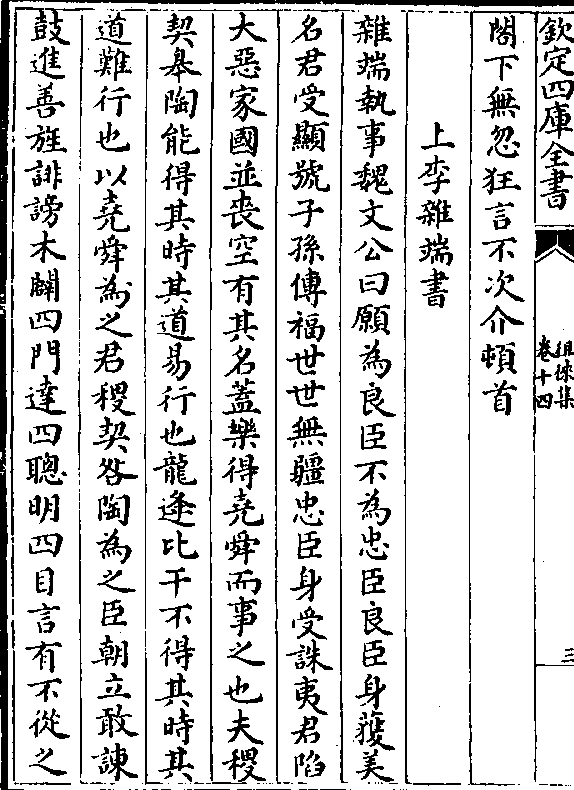 欽定四庫全書
徂徠集
卷十四
三
閤下無忽狂言不次介頓首
上李雜端書
雜端執事魏文公曰願為良臣不為忠臣良臣身獲美
名君受顯號子孫傳福世世無疆忠臣身受誅夷君陷
大惡家國並喪空有其名蓋樂得堯舜而事之也夫稷
契皋陶能得其時其道易行也龍逢比干不得其時其
道難行也以堯舜為之君稷契咎陶為之臣朝立敢諫
鼓進善旌誹謗木闢四門達四聰明四目言有不從之